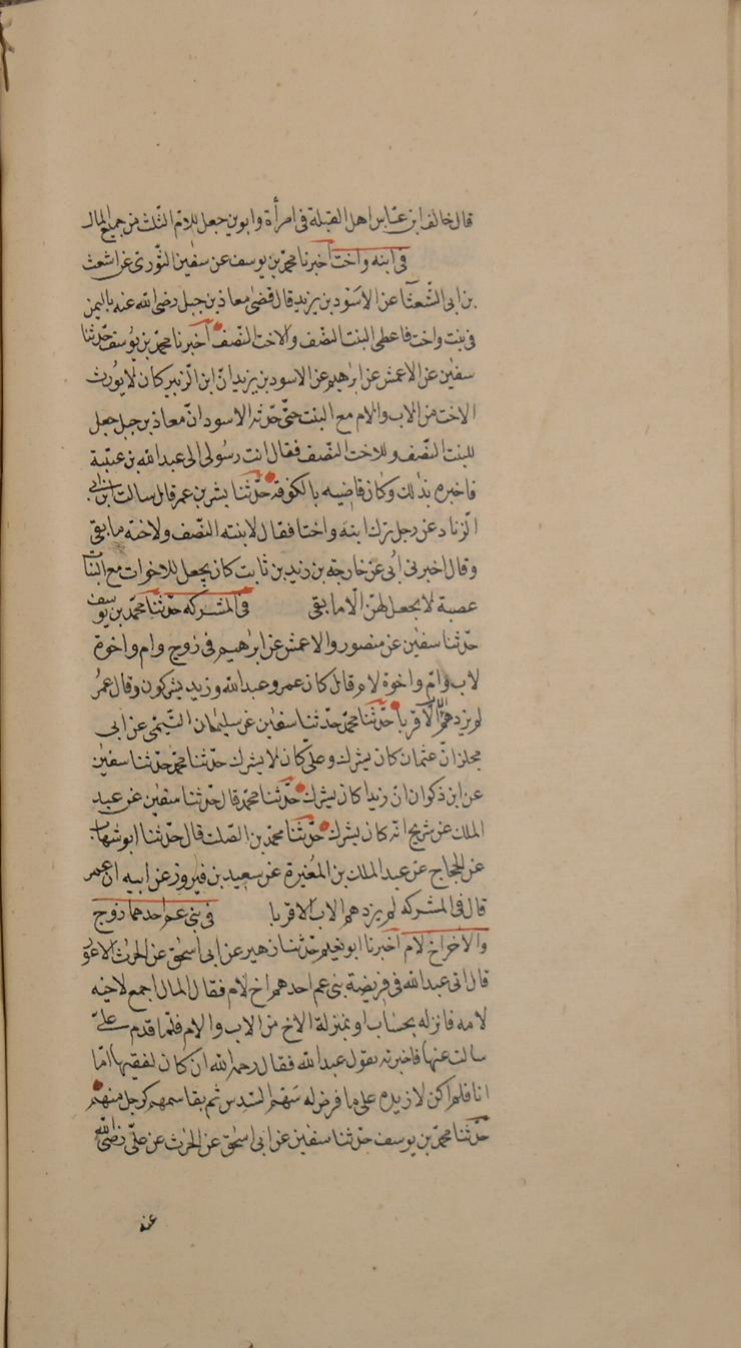 قال خالف ابن عباس اهل القبلة فى امرأة وابوين جعل للام الثلث من جميع المال
فى ابنه واخت اخبرنا محمد بن يوسف عن سفين الثورى عن اشعث
بن ابى الشعثا عن الاسود بن يزيد قال قضى معاذ بن جبل رضى الله عنه باليمن
فى بنت واخت فاعطى البنت النصف والاخت النصف اخبرنا محمد بن يوسف حدثنا
سفين عن الاعمش عن ابرهيم عن الاسود بن يزيد ان ابن الزبير كان لا يورث
الاخت من الاب والام مع البنت حتى حدثه الاسود ان معاذ بن جبل جعل
للبنت النصف وللاخت النصف فقال انت رسولى الى عبد الله بن عتبة
فاخبره بذلك وكان قاضيه بالكوفة حدثنا بشر بن عمر قال سالت ابن ابى
الزناد عن رجل ترك ابنة واختا فقال لابنته النصف ولاخته ما بقى
وقال اخبرنى ابى عن خارجه بن زيد بن ثابت كان يجعل للاخوات مع البنات
عصبة لا يجعل لهن الا ما بقى فى المشركه حدثنا محمد بن يوسف
حدثنا سفين عن منصور والاعمش عن ابرهيم فى زوج وام واخوة
لاب وام واخوة لام قال كان عمر وعبد الله وزيد يشركون وقال عمر
لم يزدهم الاب الا قربا حدثنا محمد حدثنا سفين عن سليمان التيمى عن ابى
مجلز ان عثمان كان يشرك وعلى كان لا يشرك حدثنا محمد حدثنا سفين
عن ابن ذكوان ان زيدا كان يشرك حدثنا محمد قال حدثنا سفين عن عبد
الملك عن شريح انه كان يشرك حدثنا محمد بن الصلت قال حدثنا ابو شهاب
عن الحجاج عن عبد الملك بن المغيرة عن سعيد بن فيروز عن ابيه ان عمر
قال فى المشركه لم يزدهم الاب الا قربا فى بنى عم احدهما زوج
والاخر اخ لام اخبرنا ابو نعيم حدثنا زهير عن ابى اسحق عن الحرث الاعور
قال اتى عبد الله فى فريضة بنى عم احدهم اخ لام فقال المال اجمع لاخيه
لامه فانزله بحساب او بمنزلة الاخ من الاب والام فلما قدم على
سالته عنها فاخبرته بقول عبد الله فقال رحمه الله ان كان لفقيها اما
انا فلم اكن لازيده على ما فرض له سهم السدس ثم يقاسمهم كرجل منهم
حدثنا محمد بن يوسف حدثنا سفين عن ابى اسحق عن الحرث عن على رضى الله
عنه